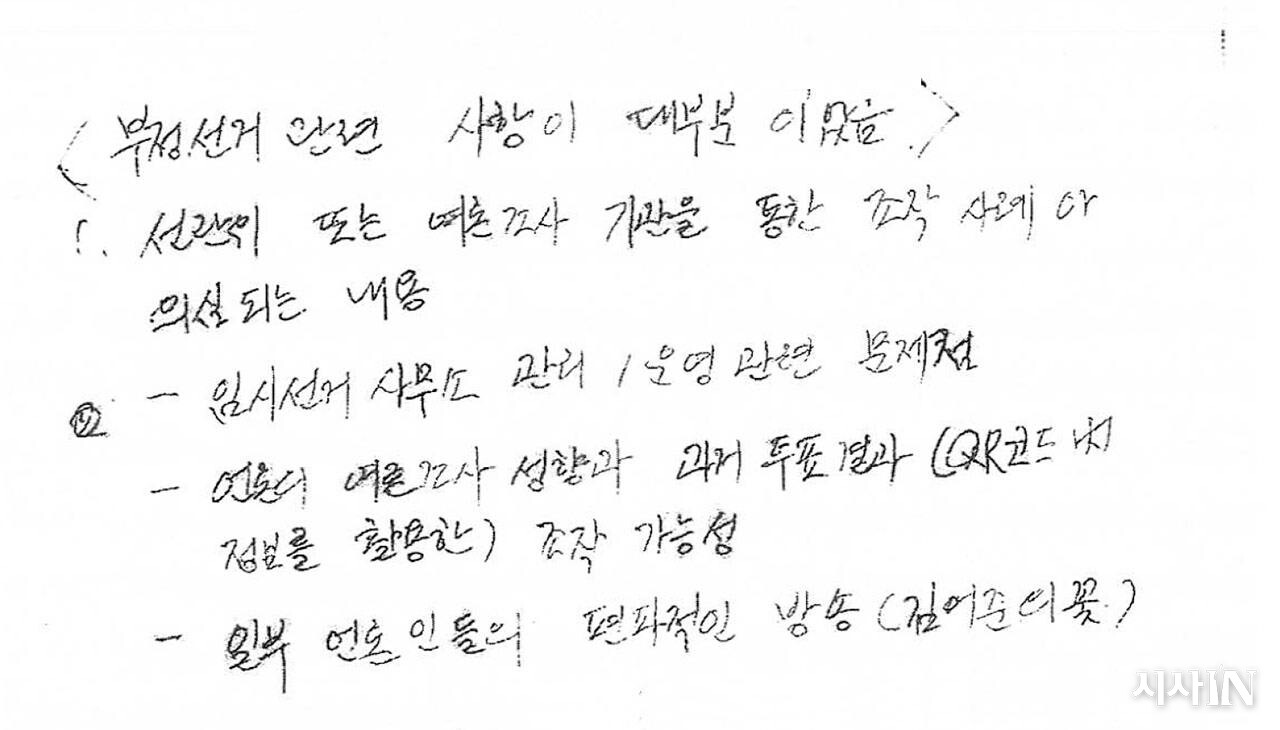 <부정선거 관련 사항이 대부분 이었음.>
1. 선관위 또는 여론조사 기관을 통한 조작 사례 and
의심되는 내용
- 임시선거 사무소 관리 / 운영 관련 문제점
②
- 언론의 여론조사 성향과 과거 투표 결과 (QR코드 내
정보를 활용한) 조작 가능성
- 일부 언론인들의 편파적인 방송 (김어준의 꽃.)
시사IN